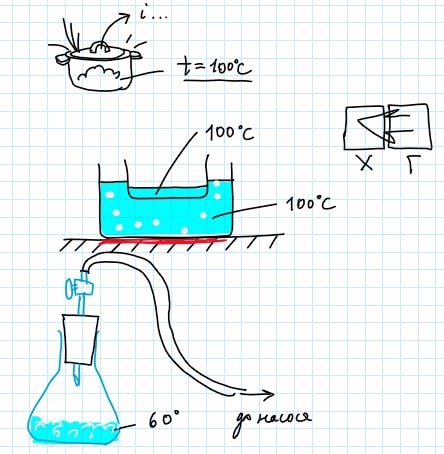 i...
t=100°C
100°C
Х Г
100°C
60°
до насоса